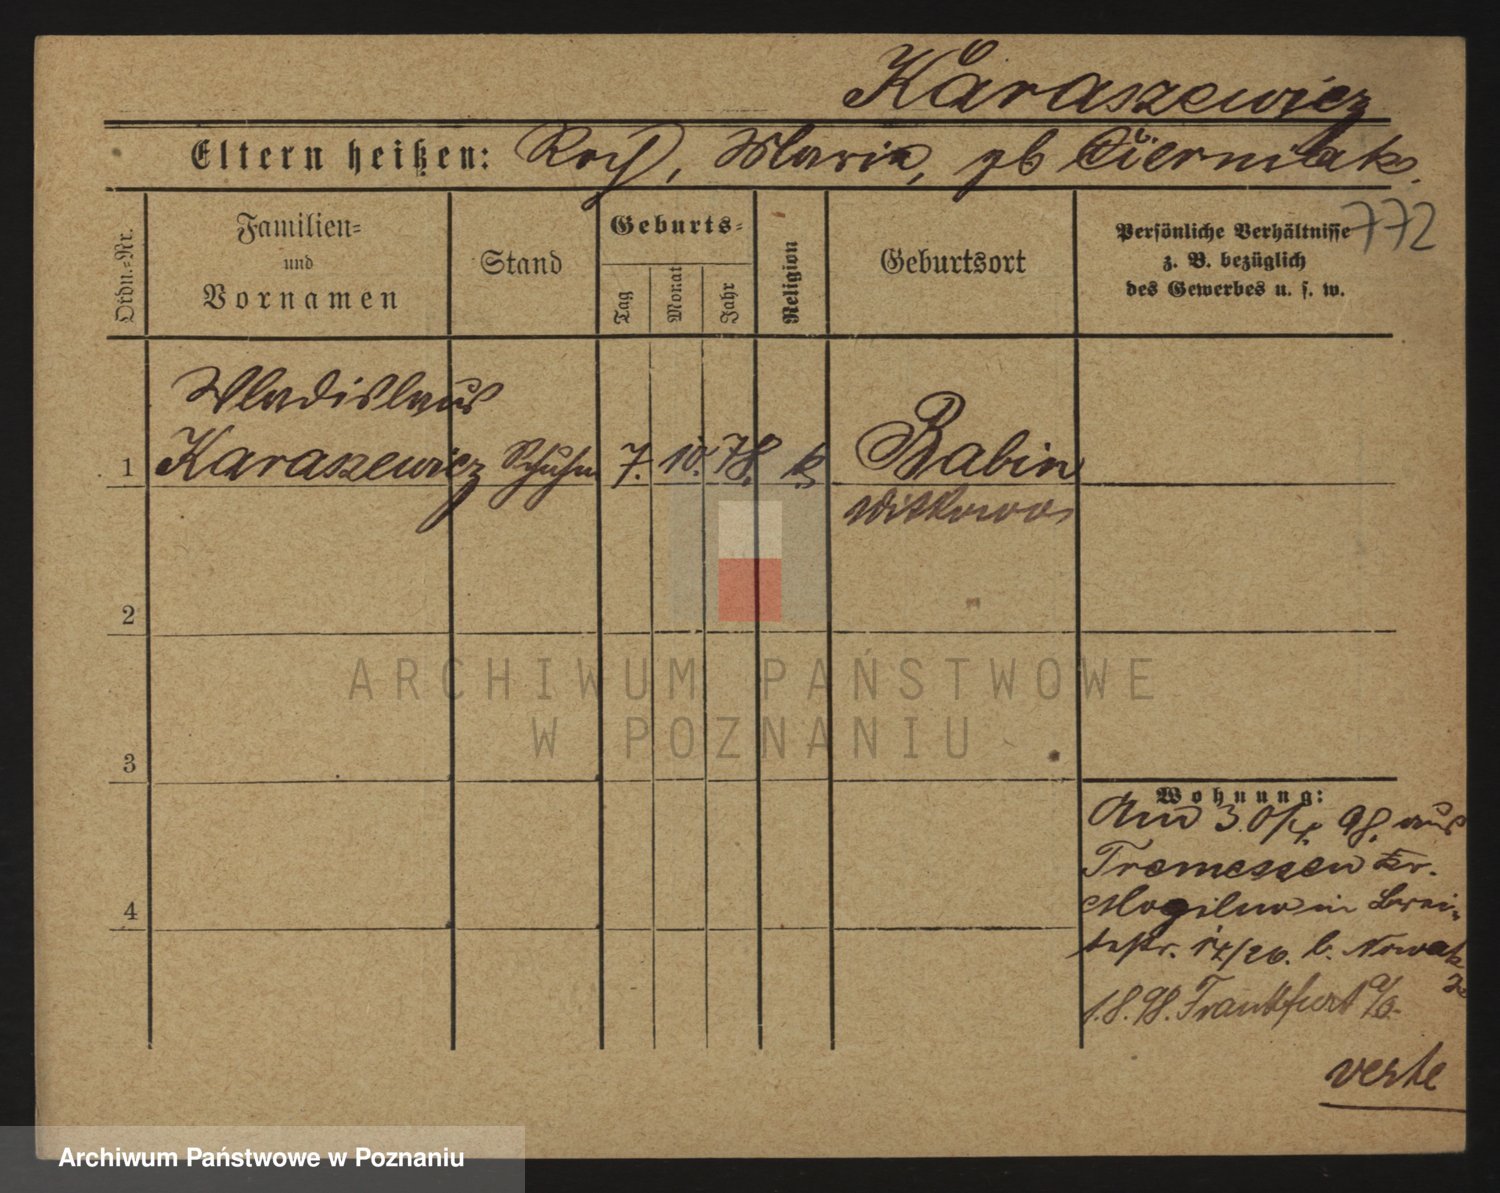 Karaszewicz
Eltern heißen: Roch, Maria, gb Cierniak.
772
Ordn.-Nr.
Familien-
und
Vornamen
Stand
Geburts-
Tag
Monat
Jahr
Religion
Geburtsort
Persönliche Verhältnisse
z. B. bezüglich
des Gewerbes u. s. w.
Wladislaus
1 Karaszewicz Schuhm 7. 10. 78. k Babin
Witkowo
2
ARCHIWUM PAŃSTWOWE
W POZNANIU
3
Wohnung:
3. 98. aus
Tremessen Kr.
Mogilno in Brei-
testr. 17/26. b. Nowak
1.8.98. Frankfurt a/O.
4
verte
Archiwum Państwowe w Poznaniu